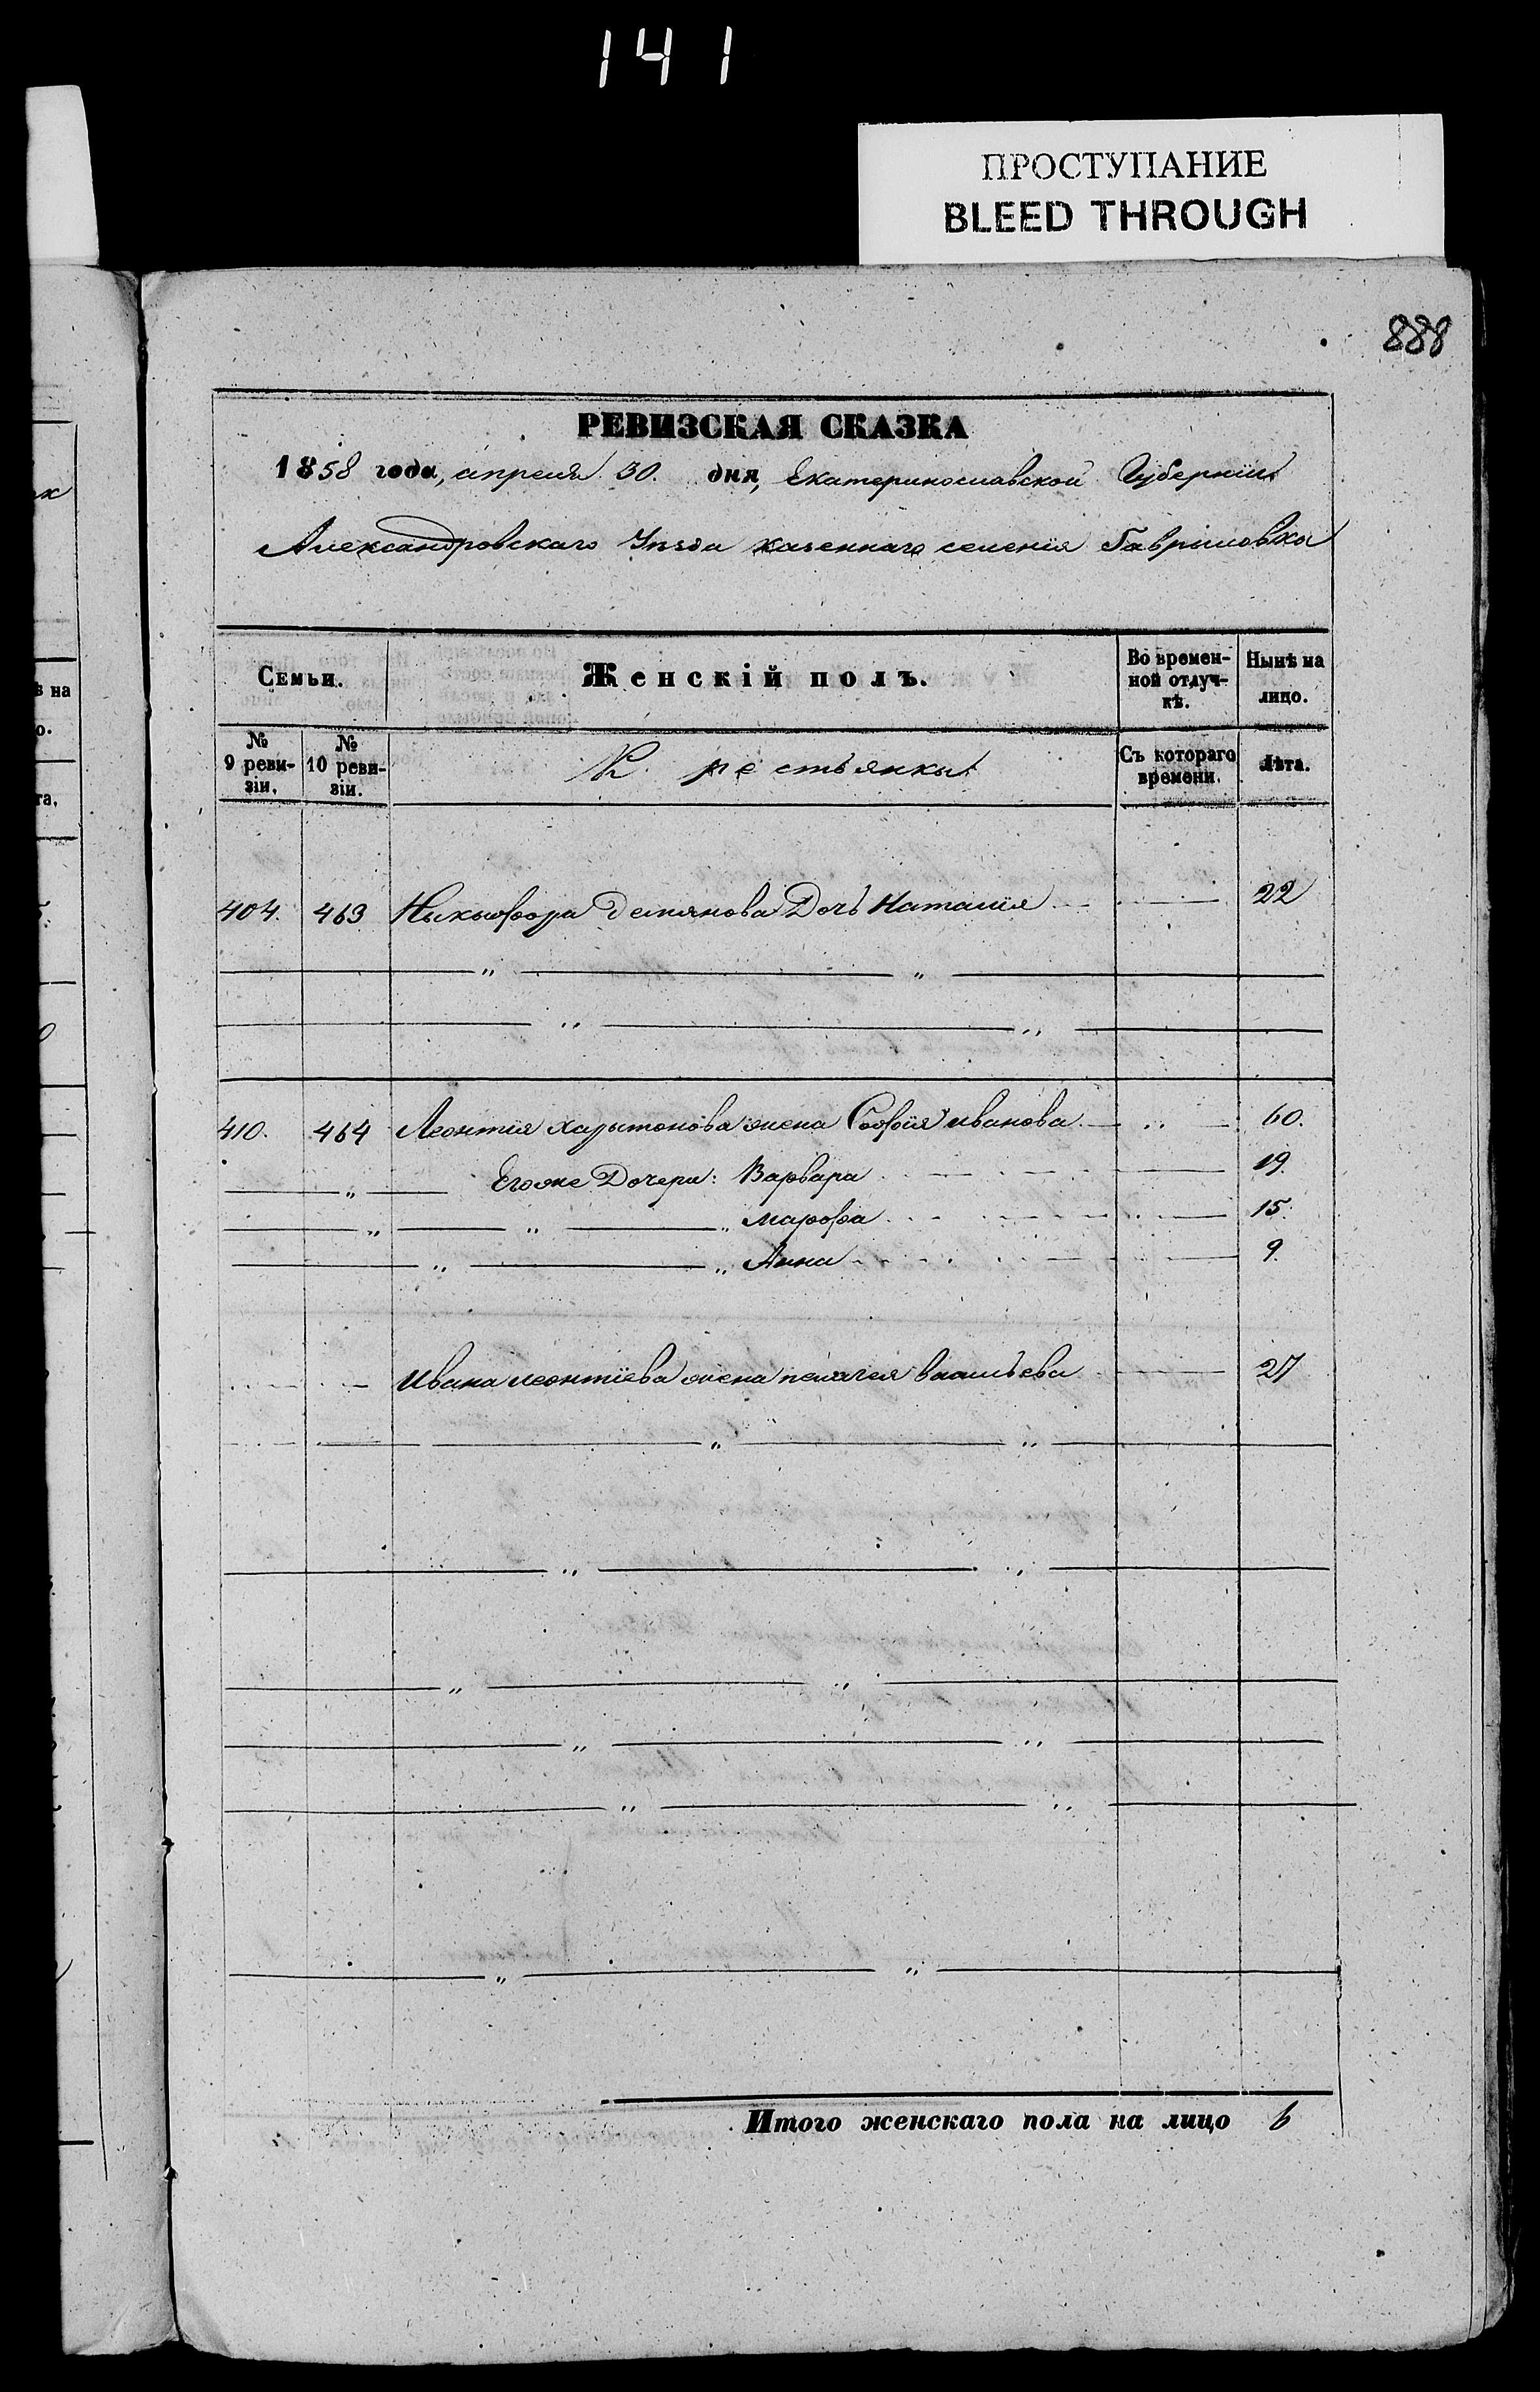 141
ПРОСТУПАНИЕ
BLEED THROUGH
888
РЕВИЗСКАЯ СКАЗКА
1858 года, апреля 30. дня, Екатеринославской Губерніи
Александровскаго Уезда казеннаго селенія Гавриловки
Семьи. Женскій полъ. Во временной отлучкѣ. Нынѣ на лицо.
№ 9 ревизіи. № 10 ревизіи. Крестьянки Съ котораго времени. Лѣта.
404. 463 Никифора Демянова Дочь Наталія 22
410. 464 Леонтія Харитонова жена Софія Иванова 60.
Егоже Дочери: Варвара 19.
Марфа 15.
Анна 9.
Ивана Леонтіева жена пелагея васильева 27
Итого женскаго пола на лицо 6